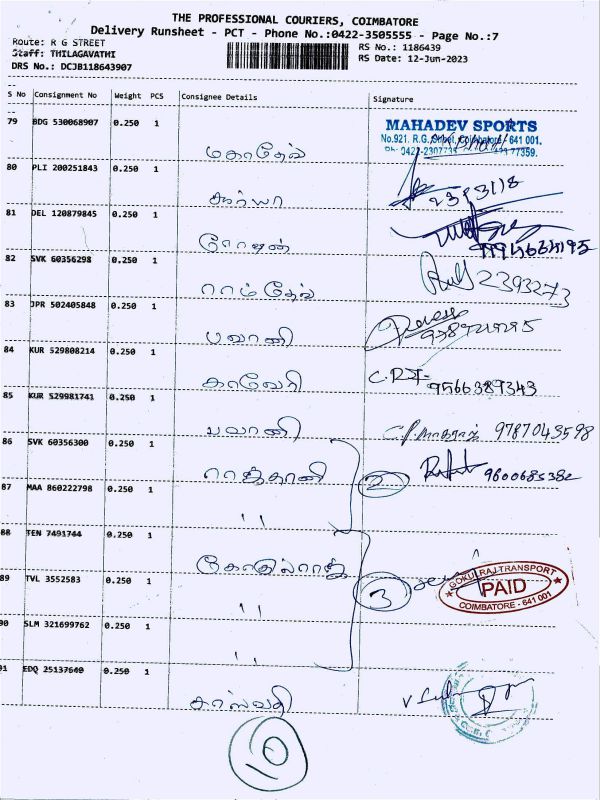 THE PROFESSIONAL COURIERS, COIMBATORE
Delivery Runsheet - PCT - Phone No.:0422-3505555 - Page No.:7
Route: R G STREET
RS No.: 1186439
Staff: THILAGAVATHI
RS Date: 12-Jun-2023
DRS No.: DCJB118643907
S No Consignment No Weight PCS Consignee Details Signature
79 BDG 530068907 0.250 1 மகாதேவ்
MAHADEV SPORTS
No.921, R.G. Street, Coimbatore - 641 001.
80 PLI 200251843 0.250 1 சூர்யா
2383118
81 DEL 120879845 0.250 1 ரோஷன்
82 SVK 60356298 0.250 1 ராம்தேவ் 2393273
83 JPR 502405848 0.250 1 பவானி
84 KUR 529808214 0.250 1 காவேரி 9566389343
85 KUR 529981741 0.250 1 பவானி 9787043598
86 SVK 60356300 0.250 1 ராஜ்தானி 2 9600685382
87 MAA 860222798 0.250 1 "
88 TEN 7491744 0.250 1 கோகுல்ராஜ்
89 TVL 3552583 0.250 1 " 3
GOKULRAJ TRANSPORT
PAID
COIMBATORE - 641 001
90 SLM 321699762 0.250 1 "
91 EDQ 25137640 0.250 1 சரஸ்வதி
10